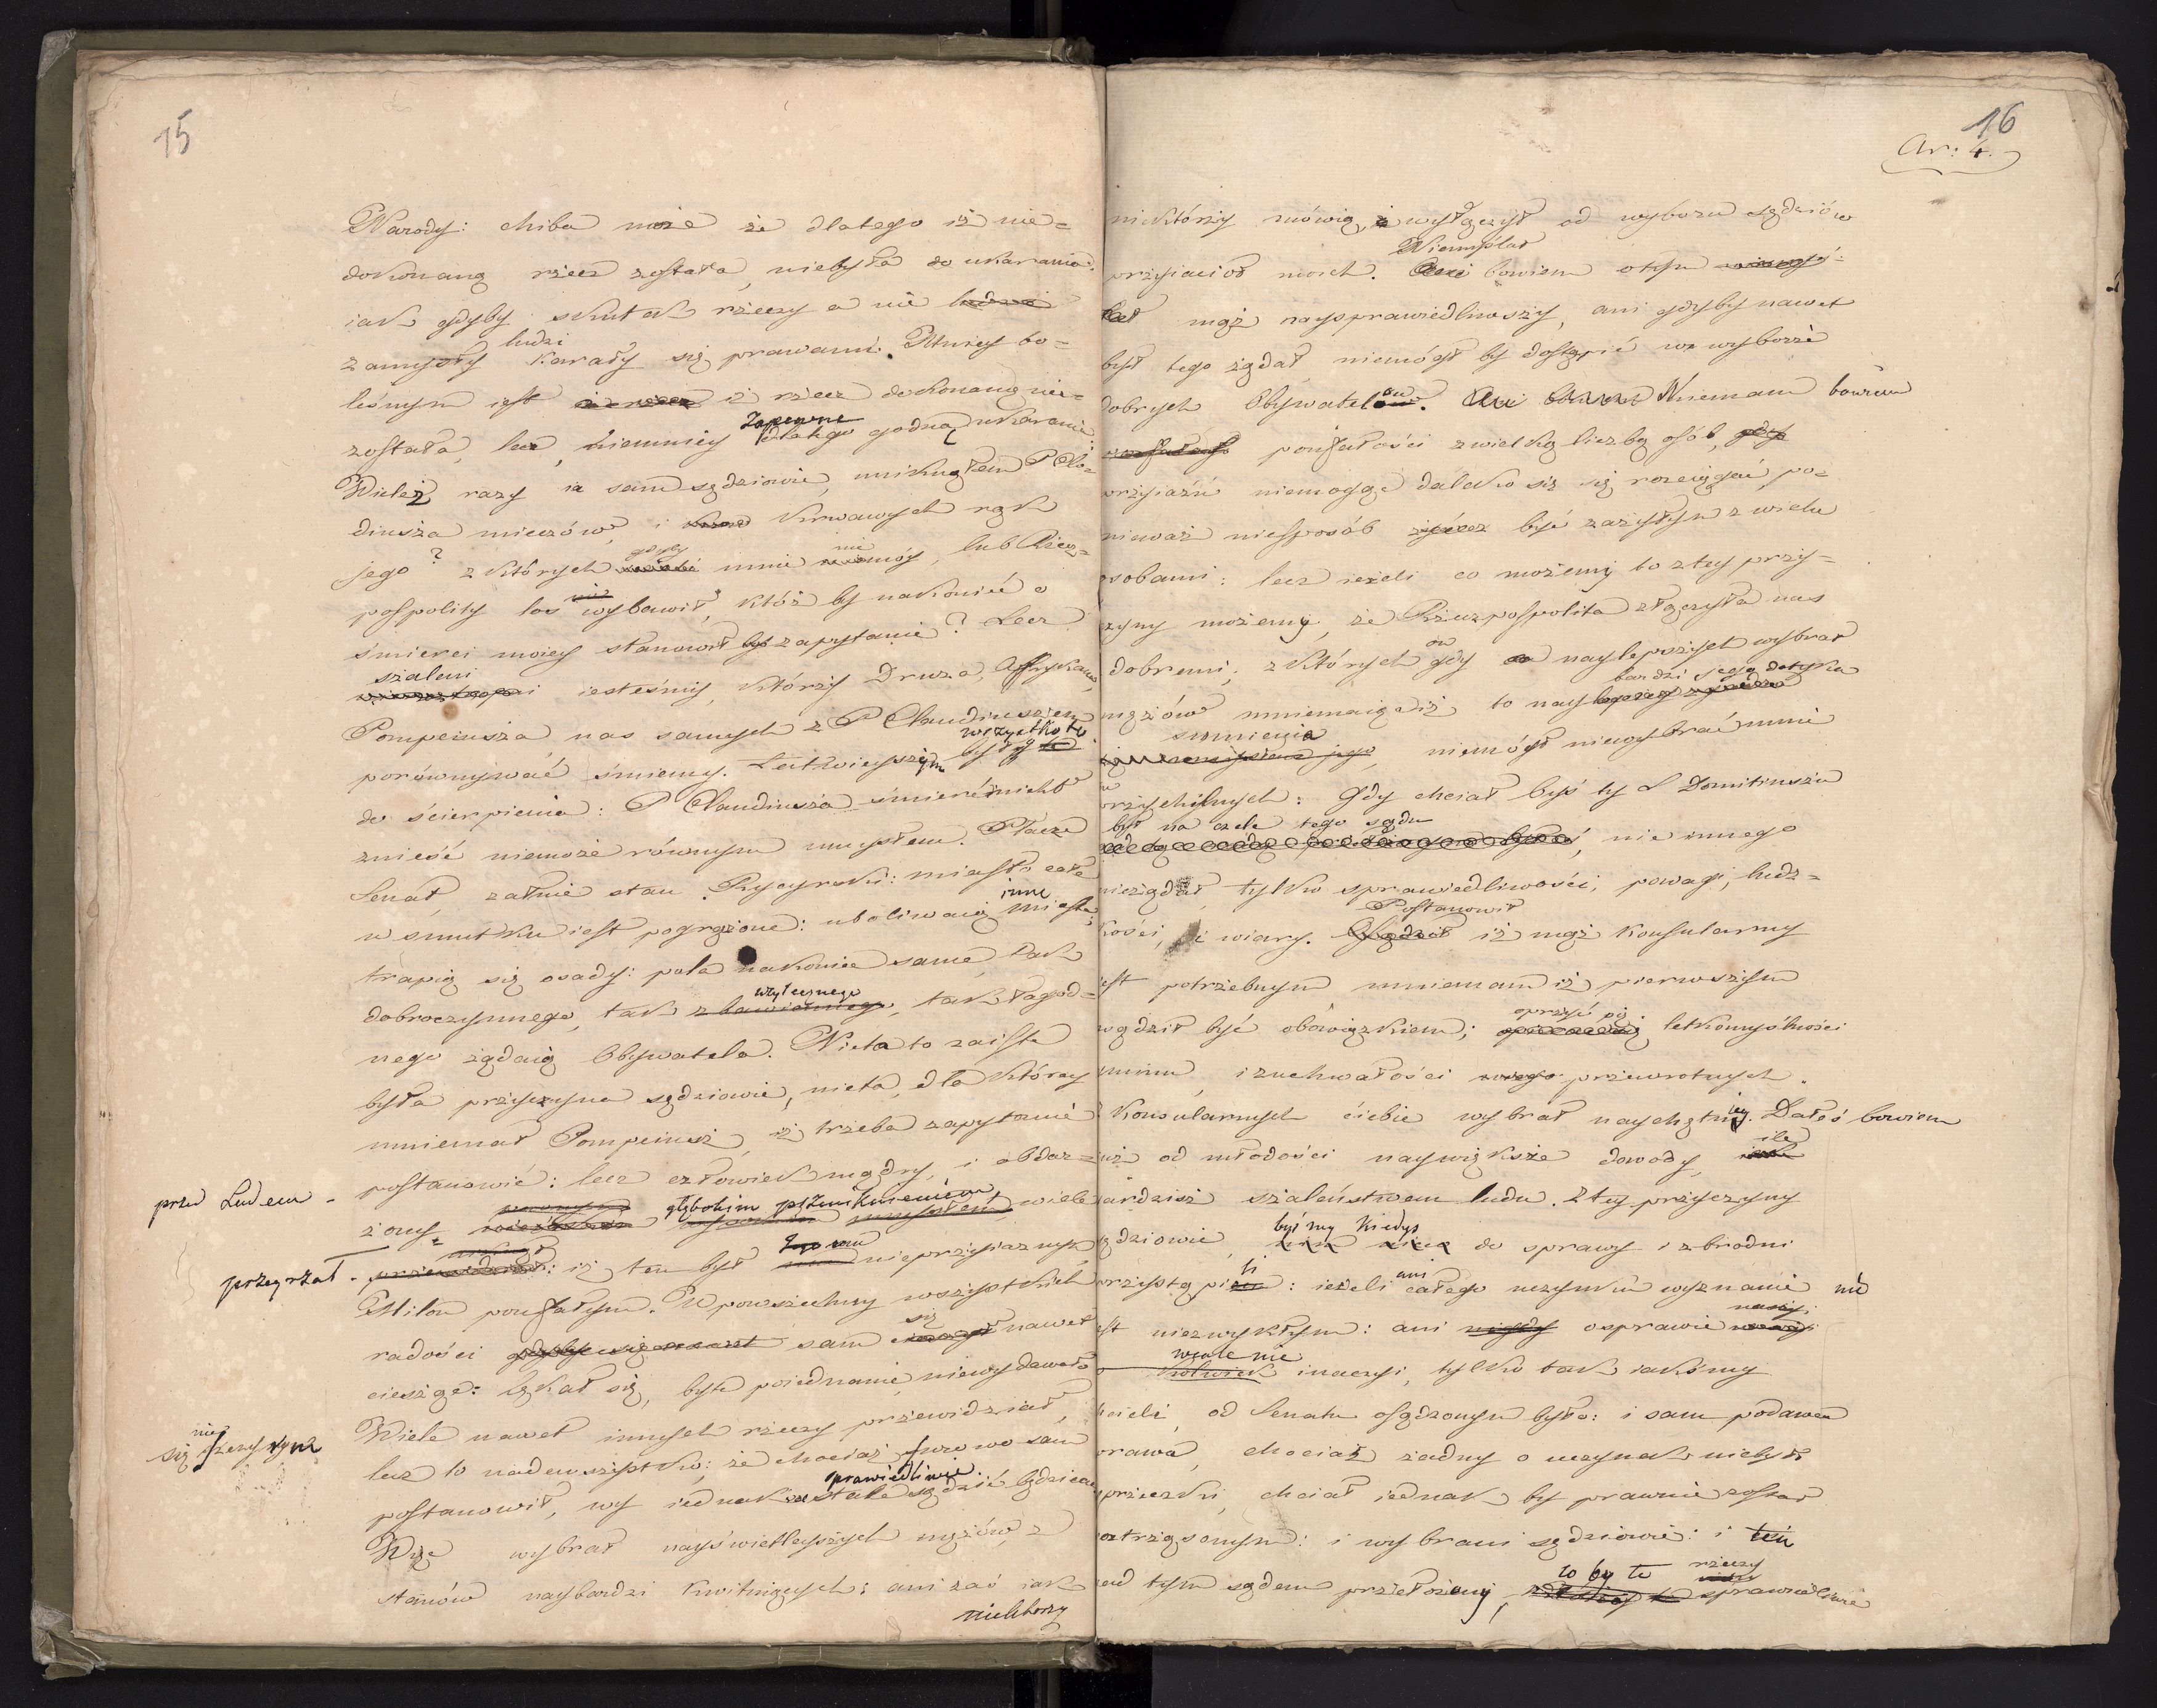 15
Narody: chiba może że dlatego iż nie-
dokonaną rzecz została, niebyła do ukarania:
iak gdyby skutek rzeczy a nie
zamysły ludzi karały się prawami. Mniey bo-
leśnym iest iż rzecz dokonaną nie-
została, lecz, niemniey zapewne godną ukarania:
Wieleż razy ia sam sędziowie, uniknąłem P Clo-
diusza mieczów, i krwawych rąk
jego? z których gdyby mnie nie móy, lub Rzecz-
pospolity los wybawił, któż by nakoniec o
śmierci moiey stanowił zapytanie? Lecz
szaleni iesteśmy, którzy Druza, Affrykana,
Pompeiusza, nas samych z P Claudiuszem
porównywać śmiemy. Łatwieyszym było wszystko to
do ścierpienia: P Claudiusza śmierć nicht
znieść niemoże równym umysłem. Płacze
Senat, żałuie stan Rycyrski: miasto całe
w smutku iest pogrążone: uboliwaią inne miasta,
trapią się osady: pola nakoniec same, tak
dobroczynnego, tak użytecznego, tak łagod-
nego żądaią Obywatela. Nieta to zaiste
była przyczyna sędziowie, nieta, dla którey
mniemał Pompeiusz, iż trzeba zapytanie
postanowić: lecz człowiek mądry, i obdar-
przed Ludem -
żony głębokim przenikneniem, wiele
przeyrzał - : iż ten był nieprzyiaznym
Milon poufałym. W powszechney wszystkich
radości sam się nawet
cieszyć: lękał się, byle poiednanie niewydawało
nie
się szczerym
Wiele nawet innych rzeczy przewidział,
lecz to nadewszystko; że chociaż surowo sam
postanowił, wy iednak sprawiedliwie sądzić będziecie
Więc wybrał nayświetleyszych mężów z
stanów naybardzi kwitnących: ani zaś iak
niektórzy
16
Ar: 4.
niektórzy mówią, wyłączył od wyboru sędziów
przyiaciół moich. Niemyślał bowiem otym
mąż naysprawiedliwszy, ani gdyby nawet
był tego żądał niemógł by dostąpić w wyborze
dobrych Obywatelów. Mniemam bowiem
poufałości zwielką liczbą osób,
przyiaźń niemogąc daleko się rozciągać, po-
nieważ niesposób być zażyłym z wielu
osobami: lecz ieżeli co możemy to z tey przy-
czyny możemy, że Rzeczpospolita złączyła nas
dobremi; z których gdy on naylepszych wybrał
mężów mniemaiąc iż to naybardzi jego dotyka
sumienia niemógł niewybrać mnie
przychilnych: Gdy chciał byś ty L Domitiuszu
był na czele tego sądu, nie innego
nieżądał, tylko sprawiedliwości, powagi, ludz-
kości, i wiary. Postanowił iż mąż konsularny
iest potrzebnym mniemam iż pierwszym
sądził być obowiązkiem; oprzyć się letkomyślności
gminu, i zuchwałości przewrotnych.
Z konsularnych ciebie wybrał naychętniey. Dałeś bowiem
iuż od młodości naywiększe dowody, ile
gardzisz szaleństwem ludu. Ztey przyczyny
sędziowie, byśmy kiedyś do sprawy i zbrodni
przystąpili: ieżeli ani całego uczynku wyznanie nie
iest niezwykłym: ani osprawie naszey
wcale nie inaczyi, tylko tak iakśmy
chcieli, od Senatu osądzonym było: i sam podawca
prawa, chociaż żadny o uczynek niebył
sprzeczki, chciał iednak by prawnie został
roztrząsonym: i wybrani sędziowie: i ten
nad tym sądem przełożony, co by te rzeczy sprawiedliwie